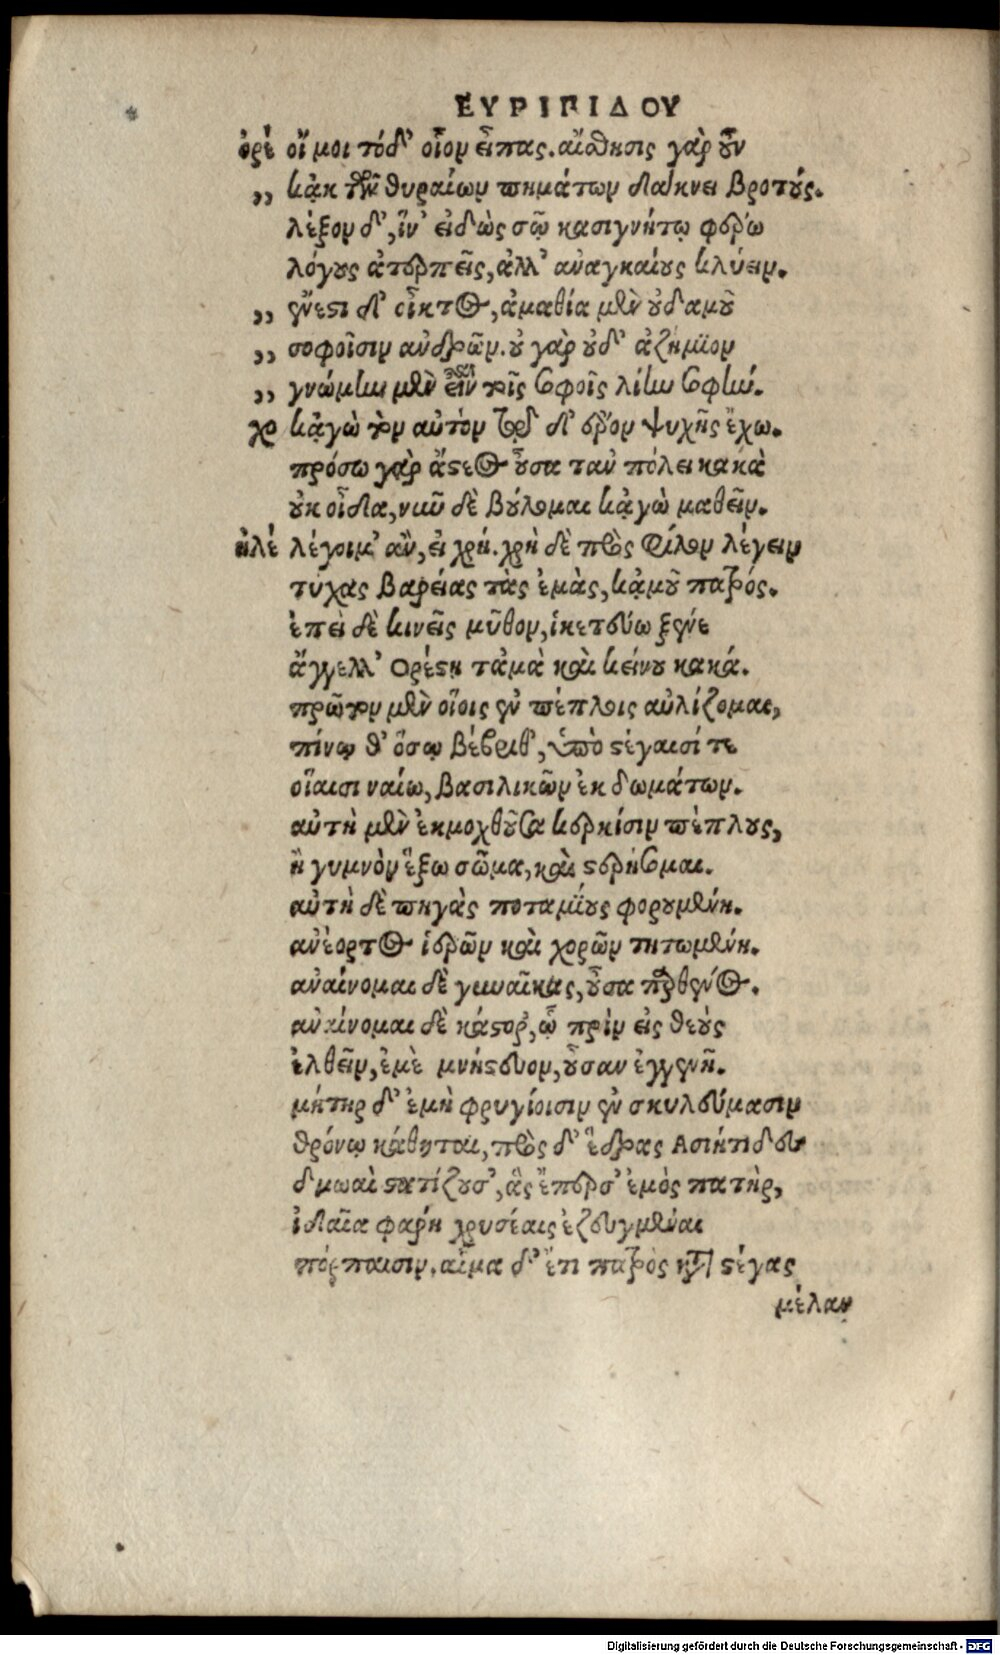 ΕΥΡΙΠΙΔΟΥ
ὀρέ οἴ μοι τόδ' οἷον εἶπας. αἴσθησις γὰρ οὖν
,, κᾀκ τῶν θυραίων πημάτων δάκνει βροτούς.
λέξον δ', ἵν' εἰδὼς σῷ κασιγνήτῳ φέρω
λόγους ἀτερπεῖς, ἀλλ' ἀναγκαίους κλύειν.
,, ἔνεστι δ' οἶκτος, ἀμαθία μὲν οὐδαμοῦ
,, σοφοῖσιν ἀνδρῶν. οὐ γὰρ οὐδ' ἀζήμϊον
,, γνώμην μὲν εἶναι τοῖς σοφοῖς λίην σοφήν.
χο κᾀγὼ τὸν αὐτὸν τῷδ' ἔρον ψυχῆς ἔχω.
πρόσω γὰρ ἄστεος οὖσα τἀν πόλει κακὰ
οὐκ οἶδα, νῦν δὲ βούλομαι κᾀγὼ μαθεῖν.
ἠλέ λέγοιμ' ἂν, εἰ χρή. χρὴ δὲ πρὸς φίλον λέγειν
τύχας βαρείας τὰς ἐμὰς, κᾀμοῦ πατρός.
ἐπεὶ δὲ κινεῖς μῦθον, ἱκετεύω ξένε
ἄγγελλ' Ορέστη τἀμὰ καὶ κείνου κακά.
πρῶτον μὲν οἵοις ἐν πέπλοις αὐλίζομαι,
πίνῳ θ' ὅσῳ βέβριθ', ὑπὸ στέγαισί τε
οἵαισι ναίω, βασιλικῶν ἐκ δωμάτων.
αὐτὴ μὲν ἐκμοχθοῦσα κερκίσιν πέπλους,
ἢ γυμνὸν ἕξω σῶμα, καὶ στερήσομαι.
αὐτὴ δὲ πηγὰς ποταμΐους φορουμένη.
ἀνέορτος ἱερῶν καὶ χορῶν τητωμένη.
ἀναίνομαι δὲ γυναῖκας, οὖσα παρθένος.
ἀναίνομαι δὲ κάστορ', ᾧ πρὶν εἰς θεοὺς
ἐλθεῖν, ἐμὲ μνήστευον, οὖσαν ἐγγενῆ.
μήτηρ δ' ἐμὴ φρυγίοισιν ἐν σκυλεύμασιν
θρόνῳ κάθηται, πρὸς δ' ἕδρας Ασιήτιδες
δμωαὶ στατίζουσ', ἃς ἔπερσ' ἐμὸς πατὴρ,
ἰδαῖα φαρή χρυσέαις ἐζευγμέναι
πόρπαισιν. αἷμα δ' ἔτι πατρὸς κατὰ στέγας
μέλαν
Digitalisierung gefördert durch die Deutsche Forschungsgemeinschaft - DFG